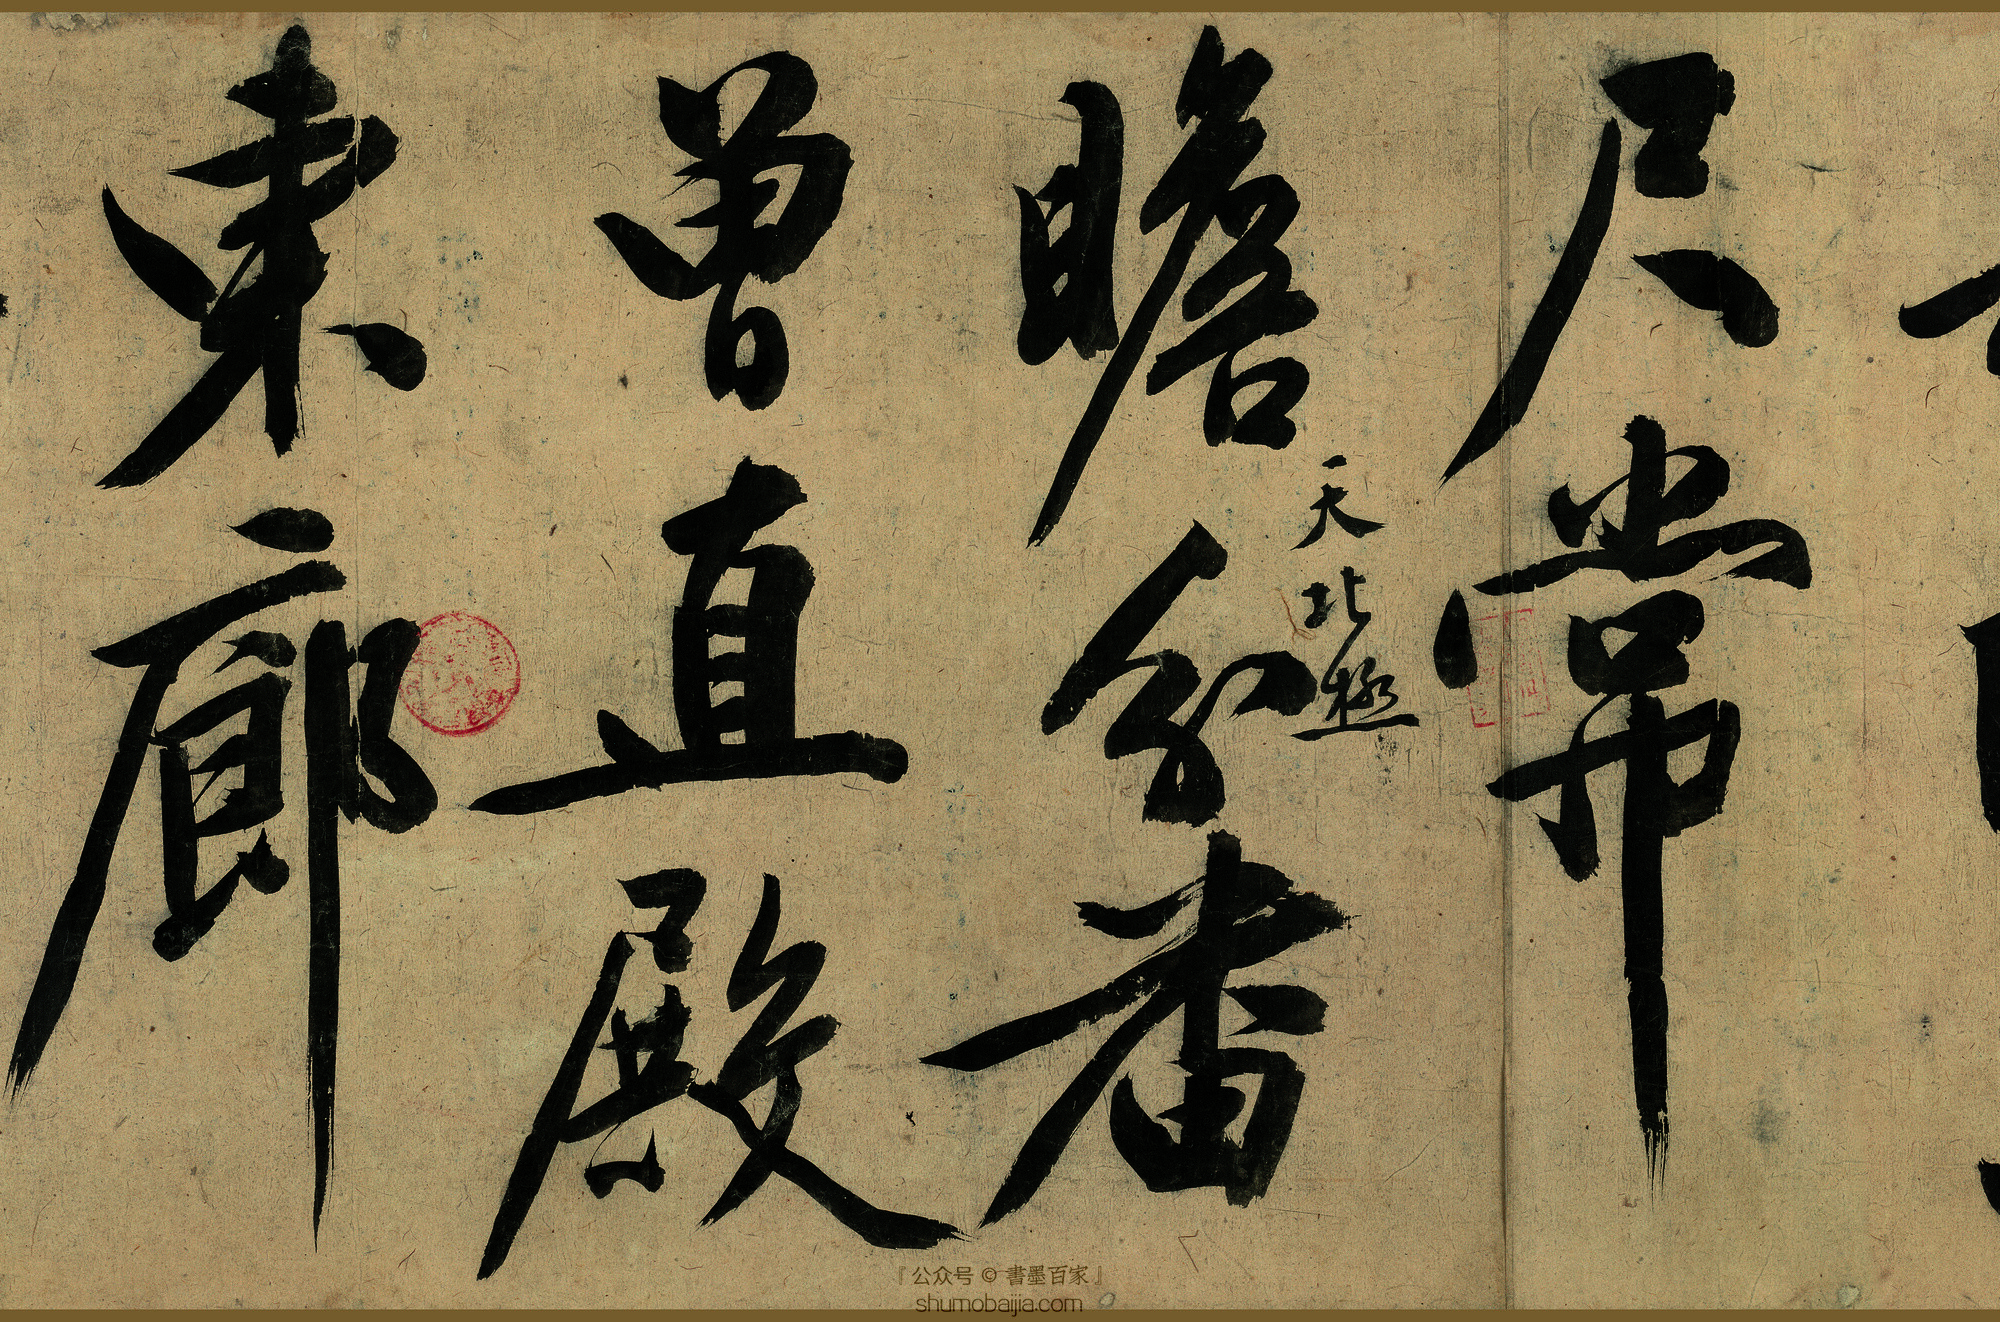 尺常
瞻分番
天北極
曾直殿
東廊
『公众号 © 書墨百家』
shumobaijia.com